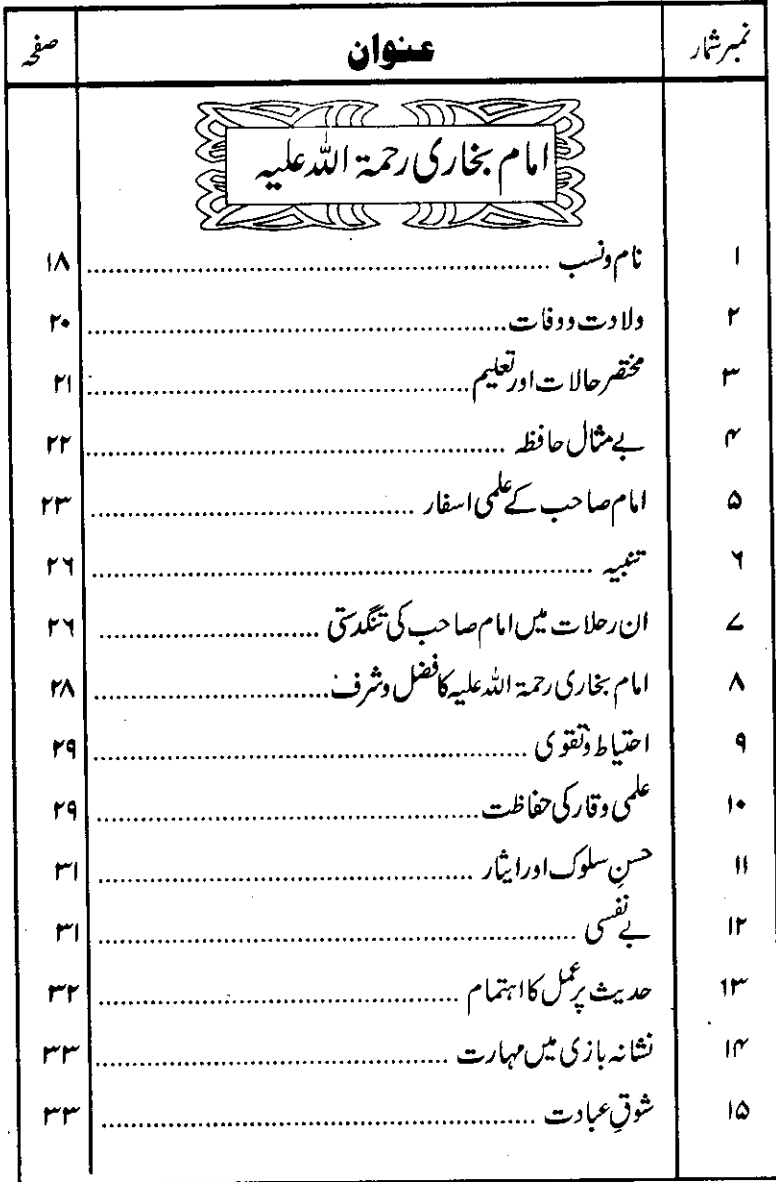 نمبر شمار عنوان صفحہ
امام بخاری رحمۃ اللہ علیہ
۱ نام ونسب ........ ۱۸
۲ ولادت ووفات ........ ۲۰
۳ مختصر حالات اور تعلیم ........ ۲۱
۴ بے مثال حافظہ ........ ۲۲
۵ امام صاحب کے علمی اسفار ........ ۲۳
۶ تنبیہ ........ ۲۶
۷ ان رحلات میں امام صاحب کی تنگدستی ........ ۲۶
۸ امام بخاری رحمۃ اللہ علیہ کا فضل وشرف ........ ۲۸
۹ احتیاط وتقوی ........ ۲۹
۱۰ علمی وقار کی حفاظت ........ ۲۹
۱۱ حسنِ سلوک اور ایثار ........ ۳۱
۱۲ بے نفسی ........ ۳۱
۱۳ حدیث پر عمل کا اہتمام ........ ۳۲
۱۴ نشانہ بازی میں مہارت ........ ۳۳
۱۵ شوقِ عبادت ........ ۳۳